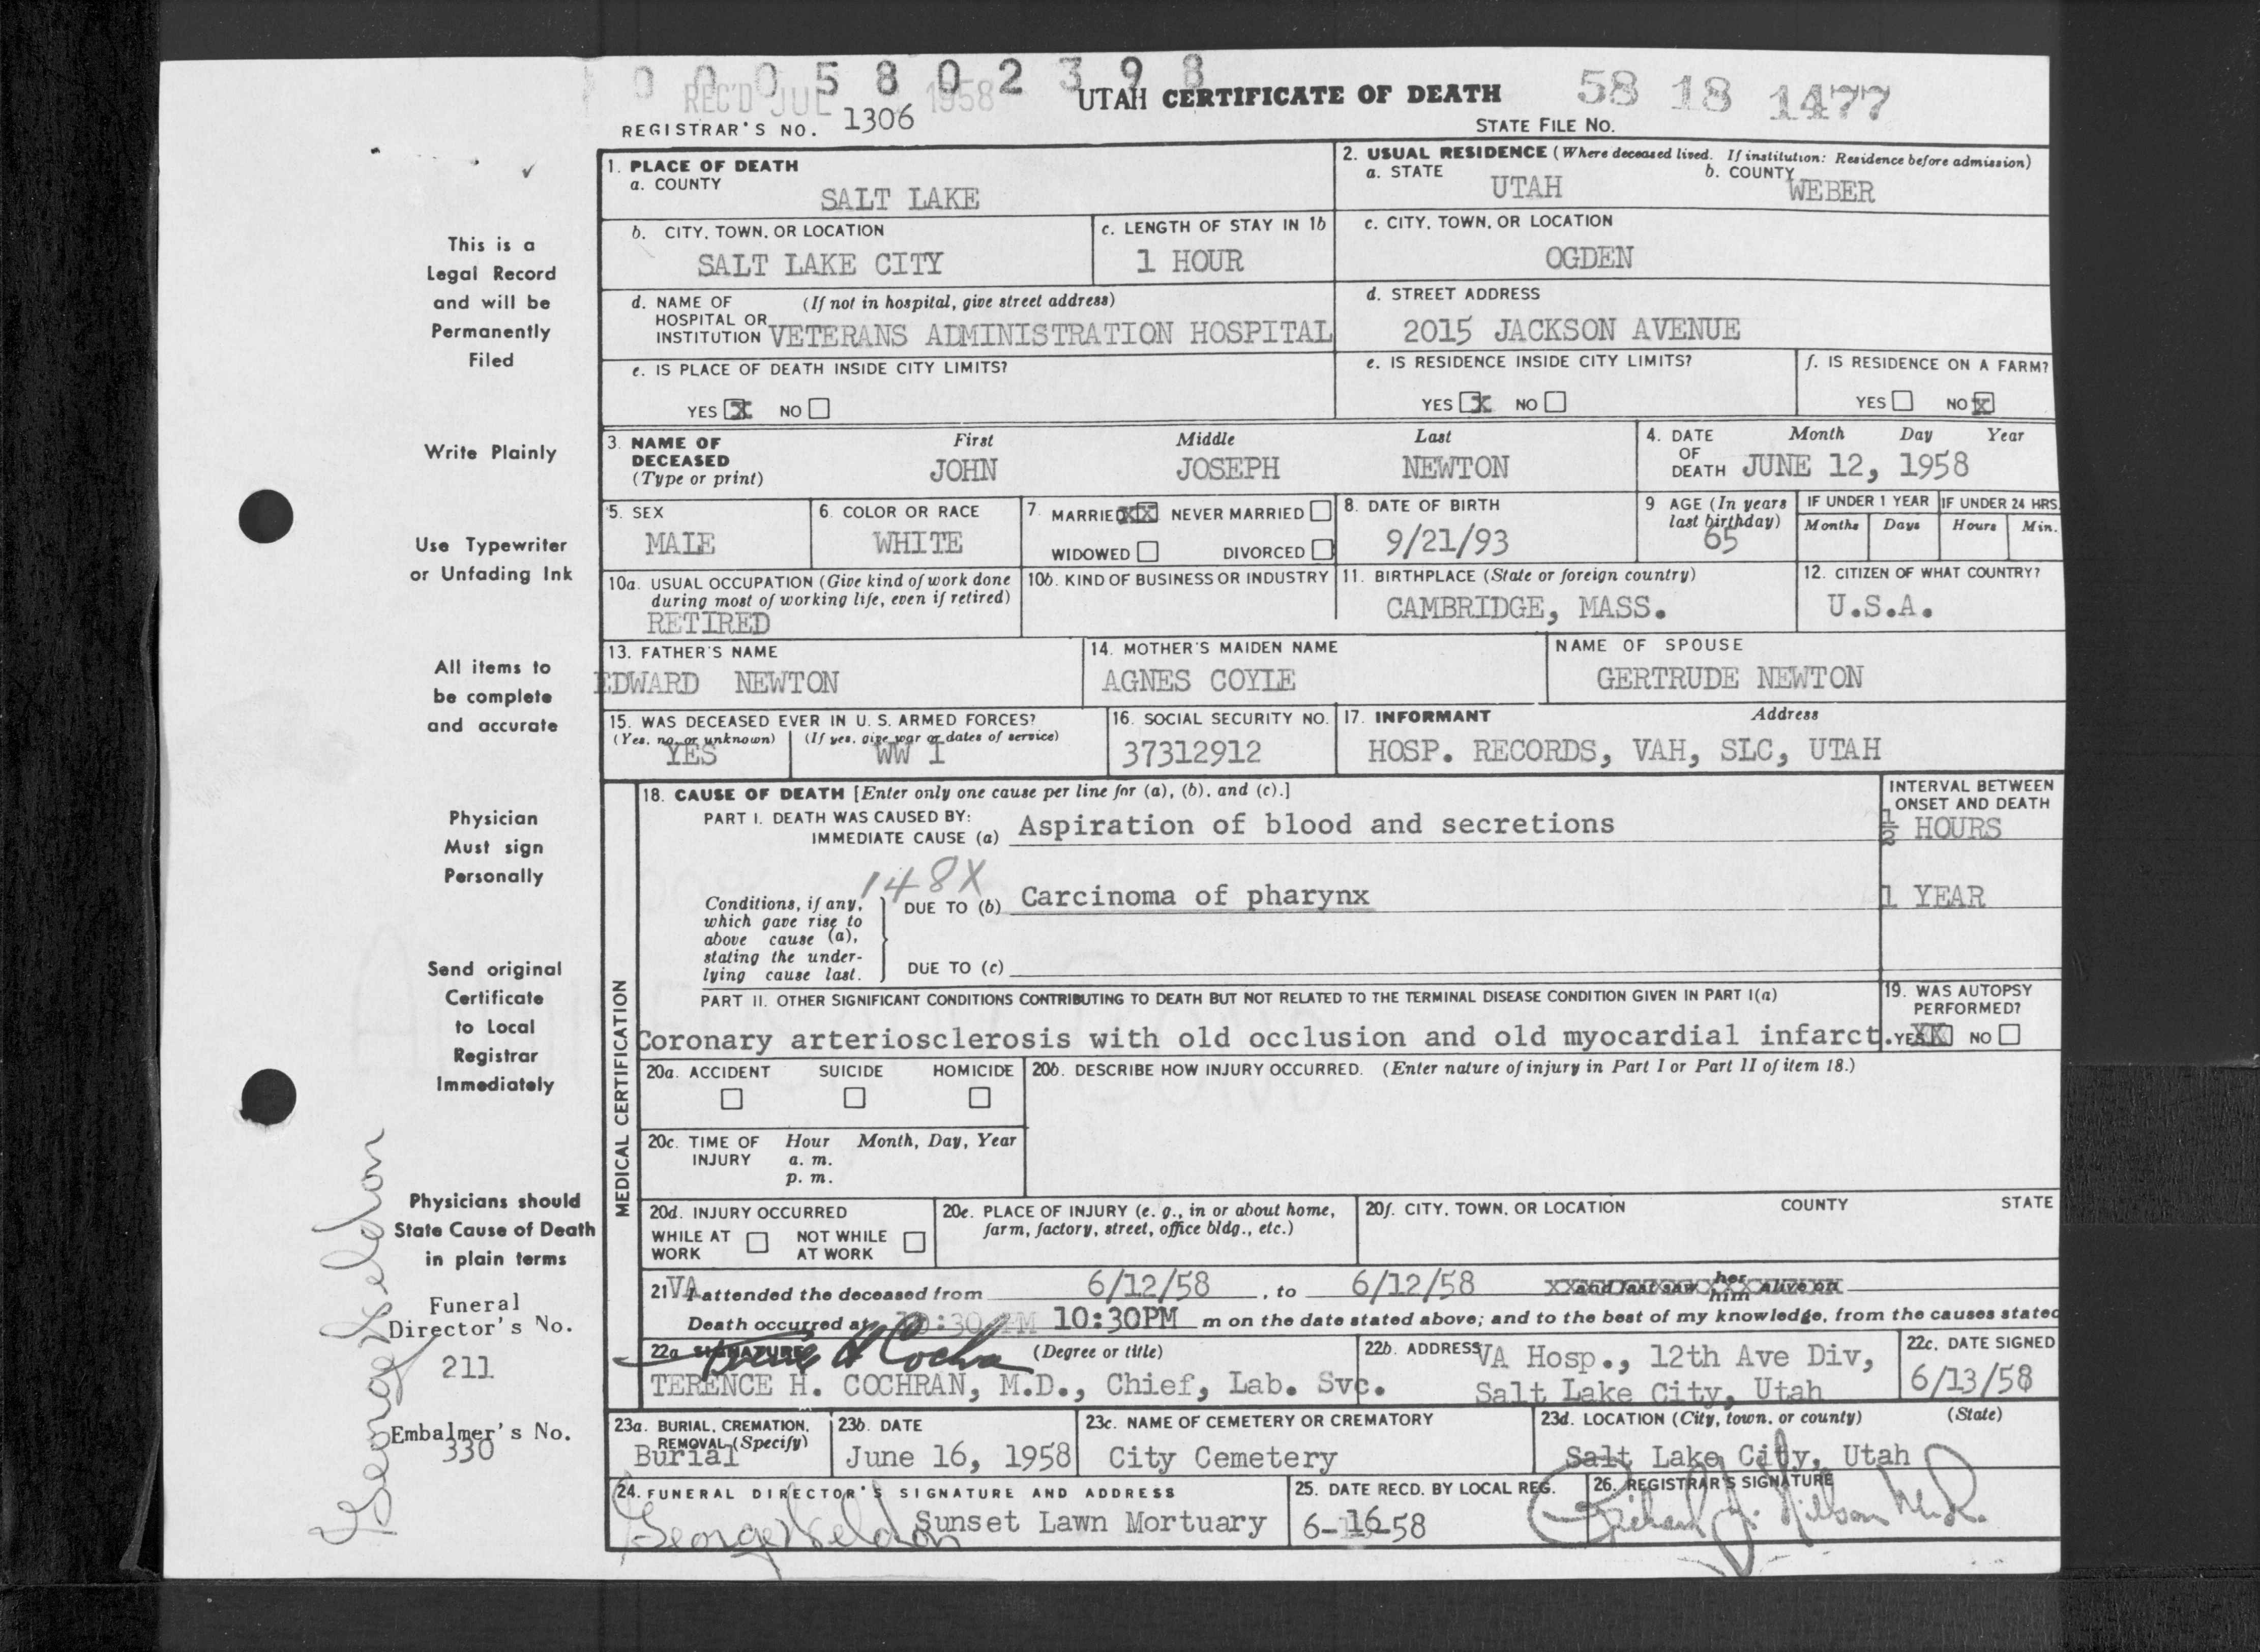 0 0 0 5 8 0 2 3 9 8
REC'D JUL 1958
UTAH CERTIFICATE OF DEATH
58 18 1477
REGISTRAR'S NO. 1306
STATE FILE NO.
This is a
Legal Record
and will be
Permanently
Filed
Write Plainly
Use Typewriter
or Unfading Ink
All items to
be complete
and accurate
Physician
Must sign
Personally
Send original
Certificate
to Local
Registrar
Immediately
Physicians should
State Cause of Death
in plain terms
Funeral
Director's No.
211
Embalmer's No.
330
1. PLACE OF DEATH
a. COUNTY
SALT LAKE
2. USUAL RESIDENCE (Where deceased lived. If institution: Residence before admission)
a. STATE UTAH b. COUNTY WEBER
b. CITY, TOWN, OR LOCATION
SALT LAKE CITY
c. LENGTH OF STAY IN 1b
1 HOUR
c. CITY, TOWN, OR LOCATION
OGDEN
d. NAME OF (If not in hospital, give street address)
HOSPITAL OR
INSTITUTION VETERANS ADMINISTRATION HOSPITAL
d. STREET ADDRESS
2015 JACKSON AVENUE
e. IS PLACE OF DEATH INSIDE CITY LIMITS?
YES X NO
e. IS RESIDENCE INSIDE CITY LIMITS?
YES X NO
f. IS RESIDENCE ON A FARM?
YES NO X
3. NAME OF DECEASED (Type or print)
First Middle Last
JOHN JOSEPH NEWTON
4. DATE OF DEATH
Month Day Year
JUNE 12, 1958
5. SEX
MALE
6. COLOR OR RACE
WHITE
7. MARRIED XX NEVER MARRIED
WIDOWED DIVORCED
8. DATE OF BIRTH
9/21/93
9 AGE (In years
last birthday)
65
IF UNDER 1 YEAR
Months Days
IF UNDER 24 HRS.
Hours Min.
10a. USUAL OCCUPATION (Give kind of work done
during most of working life, even if retired)
RETIRED
10b. KIND OF BUSINESS OR INDUSTRY
11. BIRTHPLACE (State or foreign country)
CAMBRIDGE, MASS.
12. CITIZEN OF WHAT COUNTRY?
U.S.A.
13. FATHER'S NAME
EDWARD NEWTON
14. MOTHER'S MAIDEN NAME
AGNES COYLE
NAME OF SPOUSE
GERTRUDE NEWTON
15. WAS DECEASED EVER IN U. S. ARMED FORCES?
(Yes, no, or unknown) (If yes, give war or dates of service)
YES WW I
16. SOCIAL SECURITY NO.
37312912
17. INFORMANT Address
HOSP. RECORDS, VAH, SLC, UTAH
MEDICAL CERTIFICATION
18. CAUSE OF DEATH [Enter only one cause per line for (a), (b), and (c).]
INTERVAL BETWEEN
ONSET AND DEATH
PART I. DEATH WAS CAUSED BY:
IMMEDIATE CAUSE (a) Aspiration of blood and secretions
1/2 HOURS
148X
Conditions, if any,
which gave rise to
above cause (a),
stating the under-
lying cause last.
DUE TO (b) Carcinoma of pharynx
1 YEAR
DUE TO (c)
PART II. OTHER SIGNIFICANT CONDITIONS CONTRIBUTING TO DEATH BUT NOT RELATED TO THE TERMINAL DISEASE CONDITION GIVEN IN PART I(a)
Coronary arteriosclerosis with old occlusion and old myocardial infarct.
19. WAS AUTOPSY
PERFORMED?
YES XX NO
20a. ACCIDENT SUICIDE HOMICIDE
20b. DESCRIBE HOW INJURY OCCURRED. (Enter nature of injury in Part I or Part II of item 18.)
20c. TIME OF INJURY
Hour Month, Day, Year
a. m.
p. m.
20d. INJURY OCCURRED
WHILE AT WORK NOT WHILE AT WORK
20e. PLACE OF INJURY (e. g., in or about home,
farm, factory, street, office bldg., etc.)
20f. CITY, TOWN, OR LOCATION COUNTY STATE
21 VA I attended the deceased from 6/12/58, to 6/12/58 and last saw her him alive on
Death occurred at 10:30 PM 10:30PM m on the date stated above; and to the best of my knowledge, from the causes stated
22a SIGNATURE (Degree or title)
Terence H Cochran
TERENCE H. COCHRAN, M.D., Chief, Lab. Svc.
22b. ADDRESS VA Hosp., 12th Ave Div,
Salt Lake City, Utah
22c. DATE SIGNED
6/13/58
23a. BURIAL, CREMATION,
REMOVAL (Specify)
Burial
23b. DATE
June 16, 1958
23c. NAME OF CEMETERY OR CREMATORY
City Cemetery
23d. LOCATION (City, town, or county) (State)
Salt Lake City, Utah
24. FUNERAL DIRECTOR'S SIGNATURE AND ADDRESS
Sunset Lawn Mortuary
25. DATE RECD. BY LOCAL REG.
6-16-58
26. REGISTRAR'S SIGNATURE